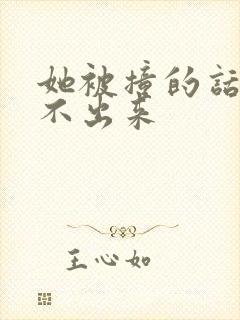 她被撞的話
不出来
王心如